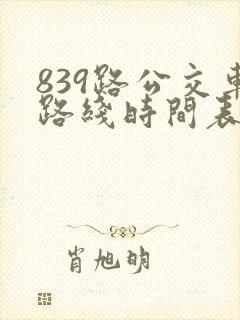 839路公交车
路綫時間表
肖旭明